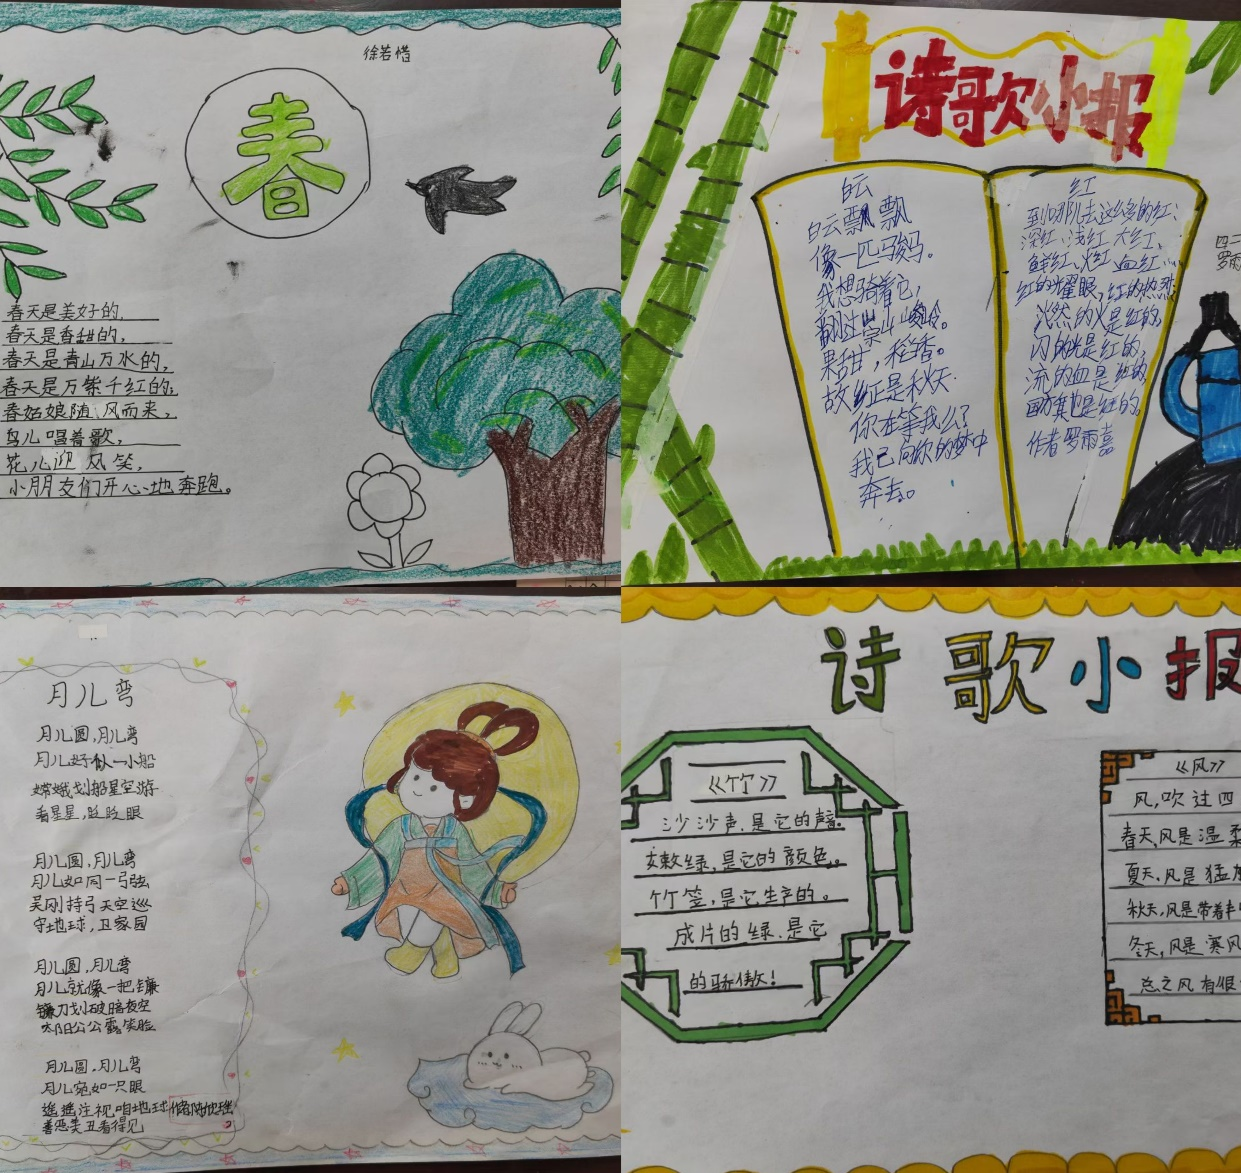 徐若惜
春
春天是美好的,
春天是香甜的,
春天是青山万水的,
春天是万紫千红的;
春姑娘随风而来,
鸟儿唱着歌,
花儿迎风笑,
小朋友们开心地奔跑。
诗歌小报
白云
白云飘飘
像一匹马妈。
我想骑着它,
翻过崇山峻岭。
果甜,稻香。
故乡正是秋天.
你在等我么?
我已向你的梦中
奔去。
红
到哪儿去这么多的红:
深红、浅红、大红、
鲜红、火红、血红……
红的耀眼,红的热烈
火然的火是红的,
闪的光是红的,
流的血是红的,
国旗也是红的。
作者 罗雨嘉
四二
罗雨
月儿弯
月儿圆,月儿弯
月儿好似一小船
嫦娥划船星空游
看星星,眨眨眼
月儿圆,月儿弯
月儿如同一弓弦
吴刚持弓天空巡
守地球,卫家园
月儿圆,月儿弯
月儿就像一把镰
镰刀划破暗夜空
太阳公公露笑脸
月儿圆,月儿弯
月儿宛如一只眼
遥遥注视咱地球
善恶美丑看得见
诗歌小报
《竹》
沙沙声,是它的声音。
嫩绿,是它的颜色。
竹签,是它生产的。
成片的绿,是它
的骄傲!
《风》
风,吹过四
春天,风是温柔
夏天,风是猛
秋天,风是带着丰
冬天,风是寒风
总之风有很